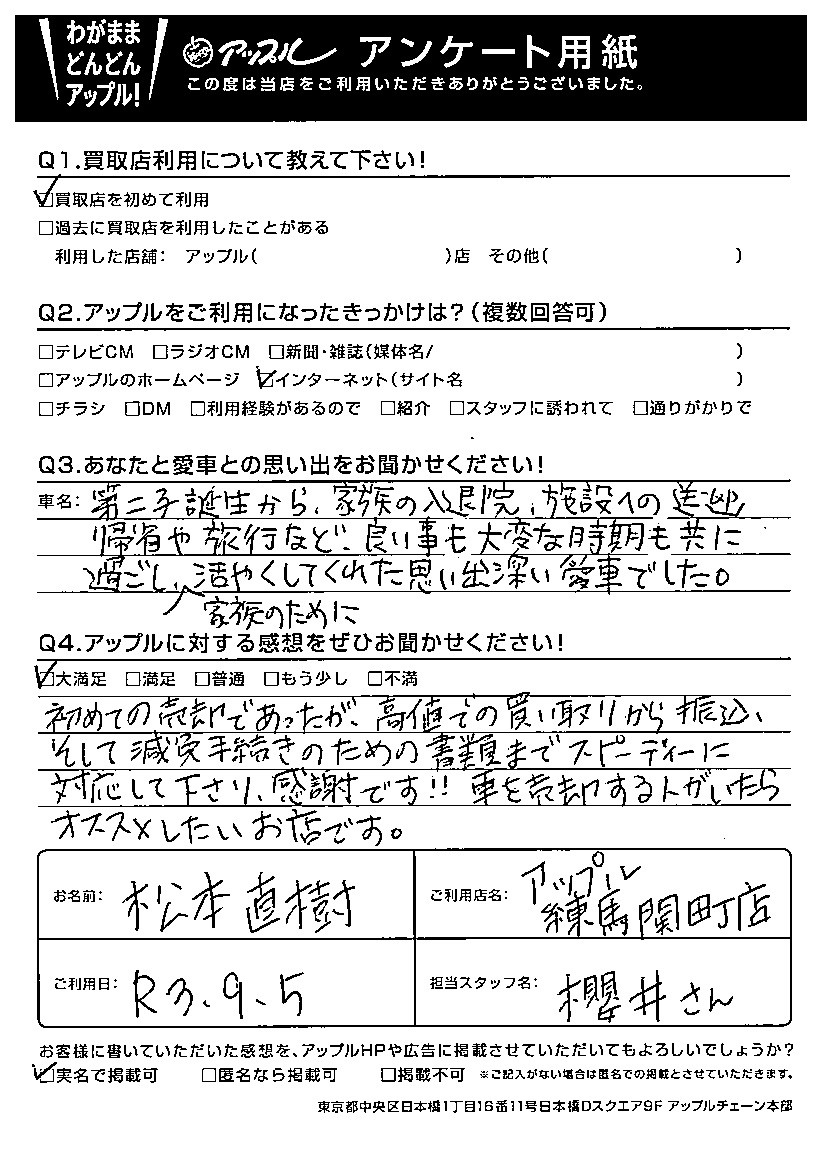 わがまま
どんどん
アップル!
アップル アンケート用紙
この度は当店をご利用いただきありがとうございました。
Q1.買取店利用について教えて下さい!
☑買取店を初めて利用
□過去に買取店を利用したことがある
利用した店舗: アップル( )店 その他( )
Q2.アップルをご利用になったきっかけは?(複数回答可)
□テレビCM □ラジオCM □新聞・雑誌(媒体名/ )
□アップルのホームページ ☑インターネット(サイト名 )
□チラシ □DM □利用経験があるので □紹介 □スタッフに誘われて □通りがかりで
Q3.あなたと愛車との思い出をお聞かせください!
車名: 第二子誕生から、家族の入退院、施設への送迎、
帰省や旅行など、良い事も大変な時期も共に
過ごし、活やくしてくれた思い出深い愛車でした。
家族のために
Q4.アップルに対する感想をぜひお聞かせください!
☑大満足 □満足 □普通 □もう少し □不満
初めての売却であったが、高値での買い取りから振込、
そして減免手続きのための書類までスピーディーに
対応して下さり、感謝です!! 車を売却する人がいたら
オススメしたいお店です。
お名前: 松本直樹
ご利用店名: アップル
練馬関町店
ご利用日: R3.9.5
担当スタッフ名: 櫻井さん
お客様に書いていただいた感想を、アップルHPや広告に掲載させていただいてもよろしいでしょうか?
☑実名で掲載可 □匿名なら掲載可 □掲載不可 ※ご記入がない場合は匿名での掲載とさせていただきます。
東京都中央区日本橋1丁目16番11号日本橋Dスクエア9F アップルチェーン本部